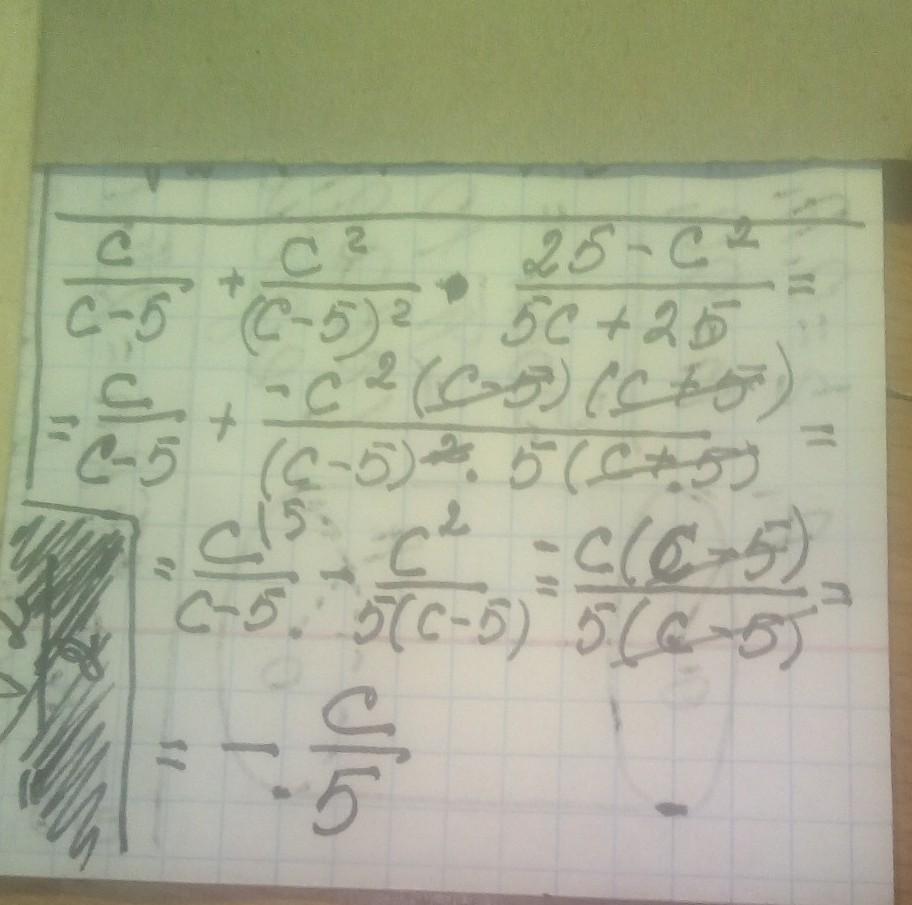 c/(c-5) + c²/(c-5)² • (25-c²)/(5c+25) =
= c/(c-5) + -c²(c-5)(c+5)/((c-5)²·5(c+5)) =
= c⁽⁵/(c-5) - c²/(5(c-5)) = -c(c-5)/(5(c-5)) =
= - c/5